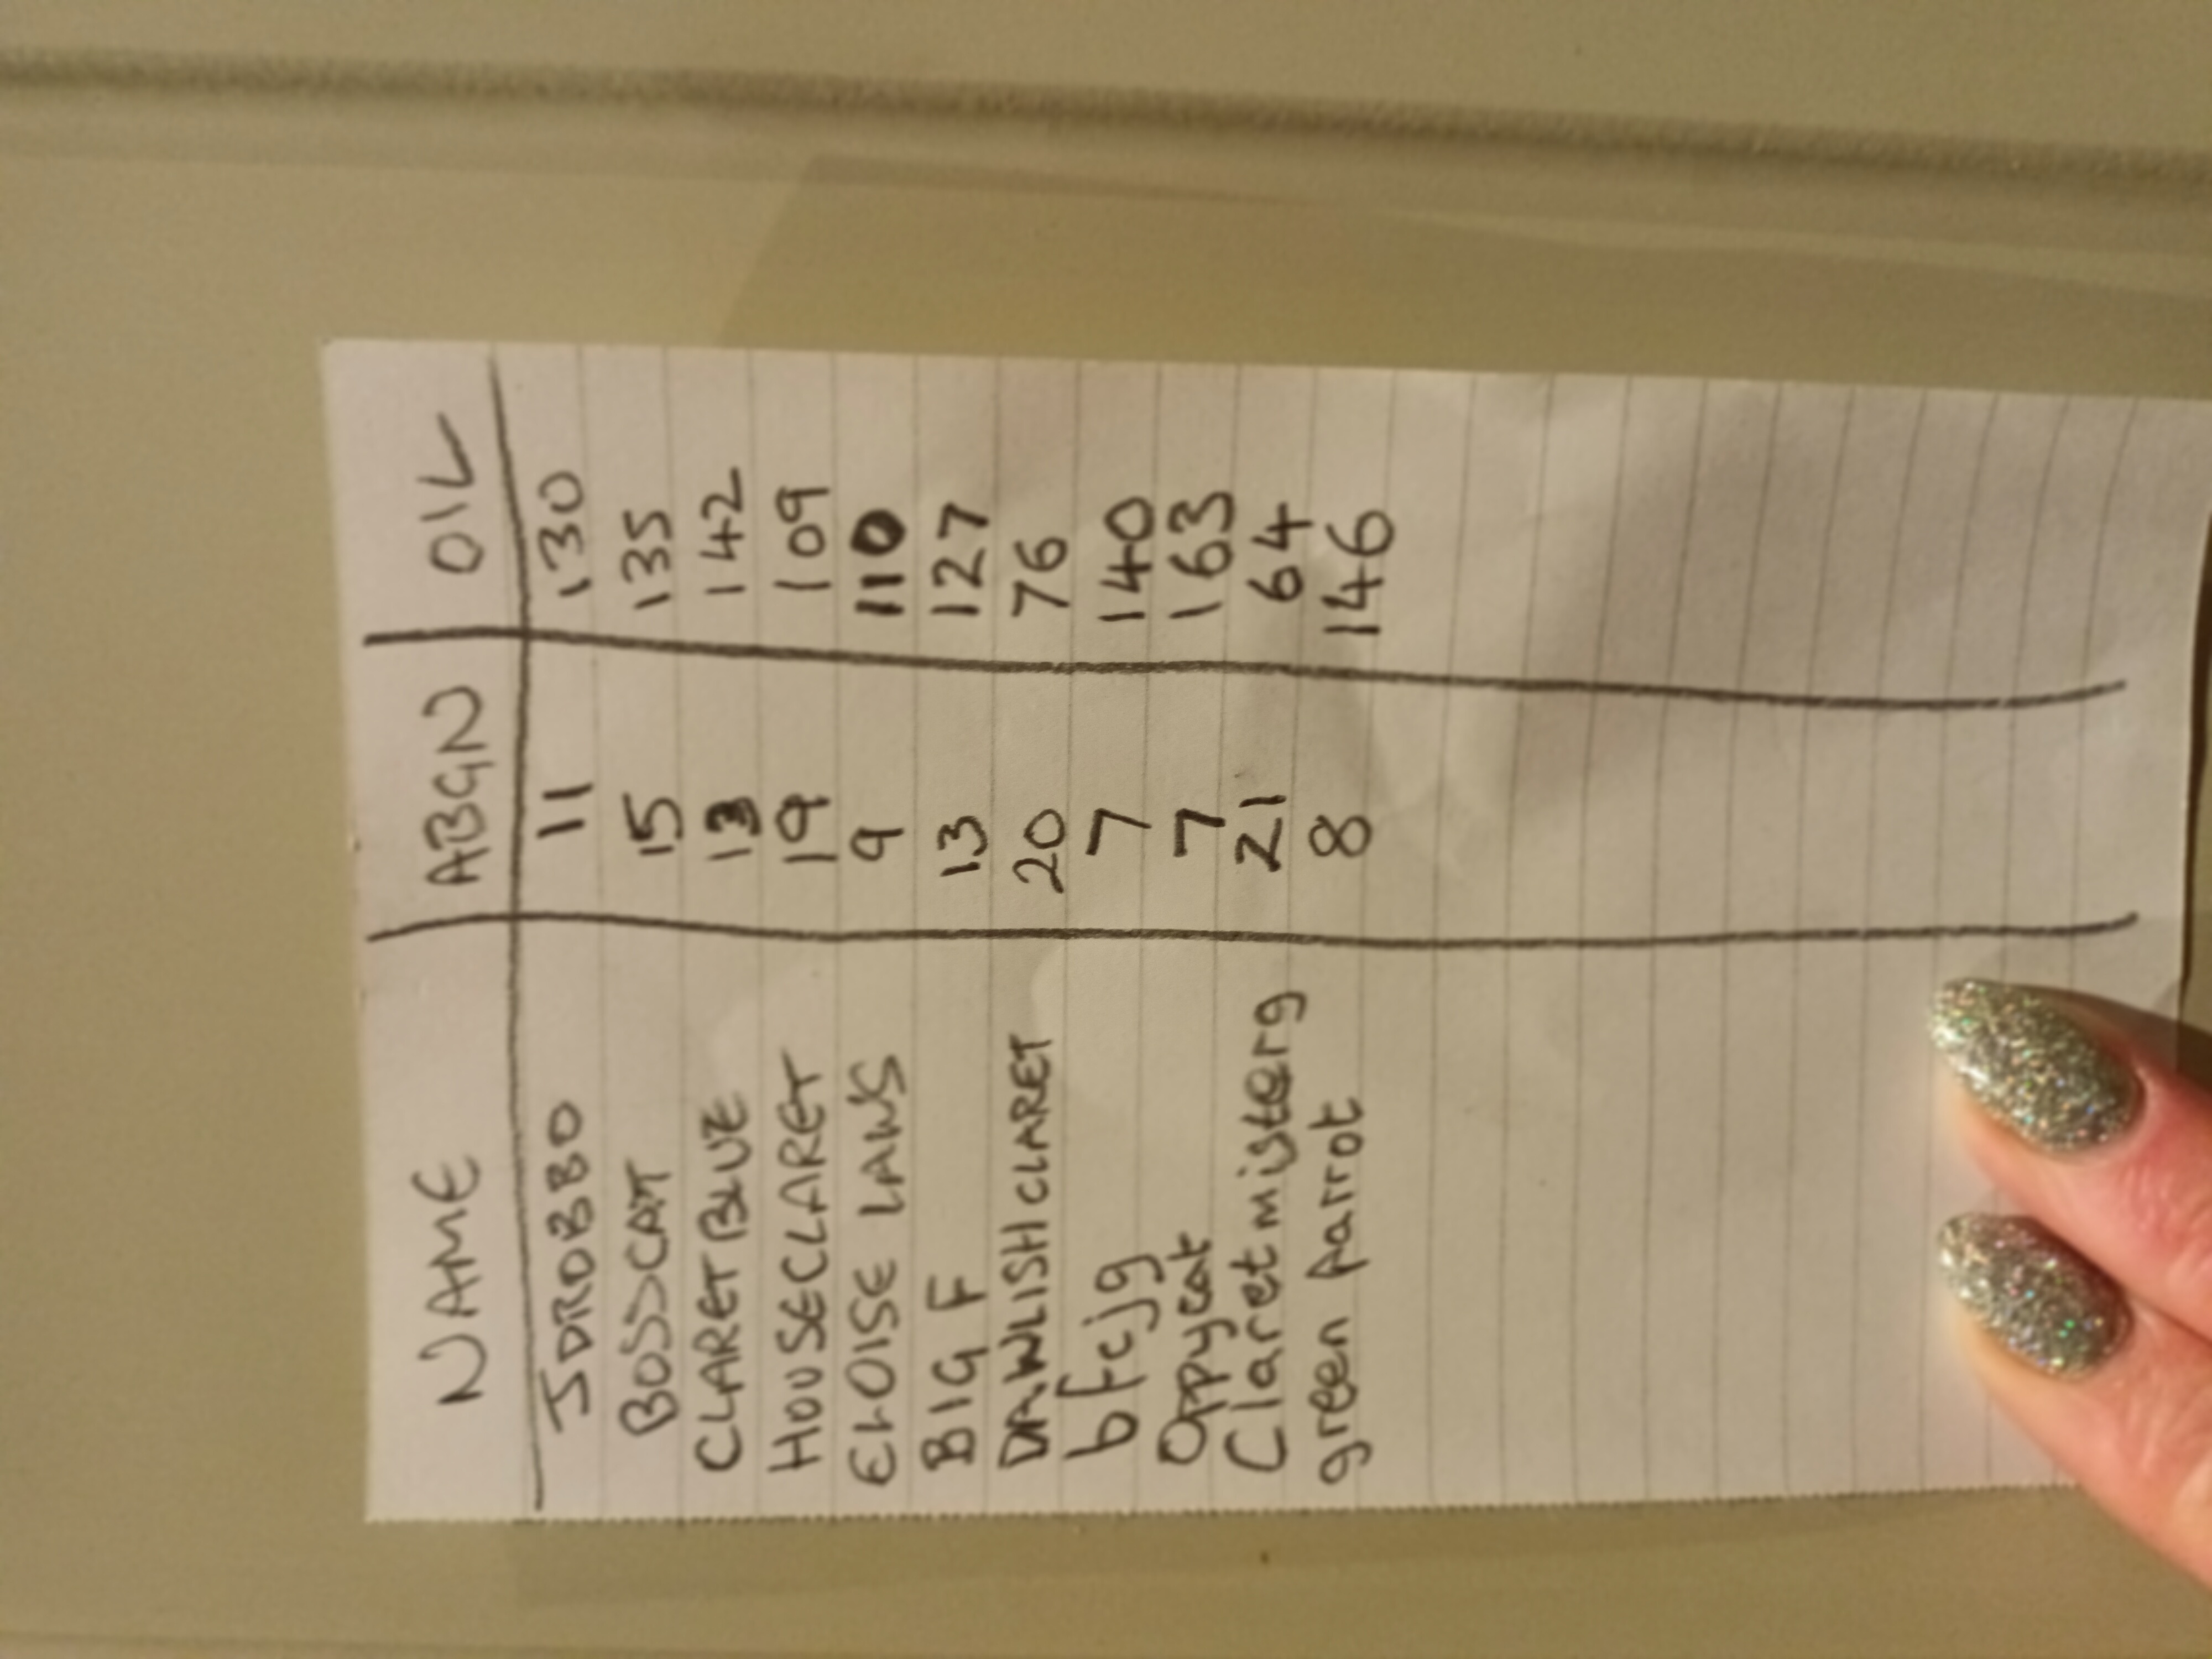 NAME ABGN OIL
JDROBBO 11 130
BOSSCAT 15 135
CLARETBLUE 13 142
HOUSECLARET 19 109
ELOISE LAWS 9 110
BIG F 13 127
DAWLISHCLARET 20 76
bfcjg 7 140
Oppycat 7 163
Claretmisterg 21 64
green parrot 8 146